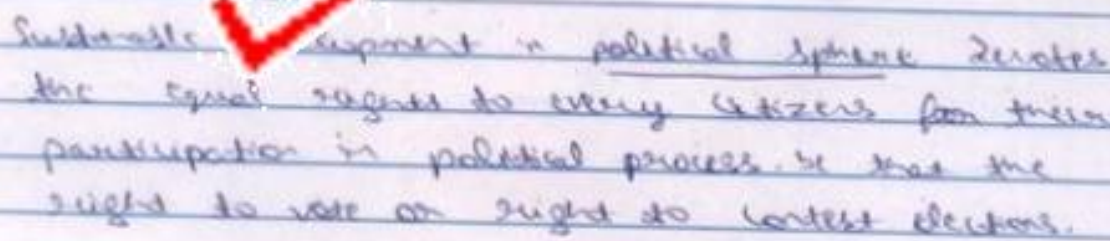 Sustainable in political sphere denotes
the equal rights to every citizens for their
participation in political process. be that the
right to vote or right to contest elections.